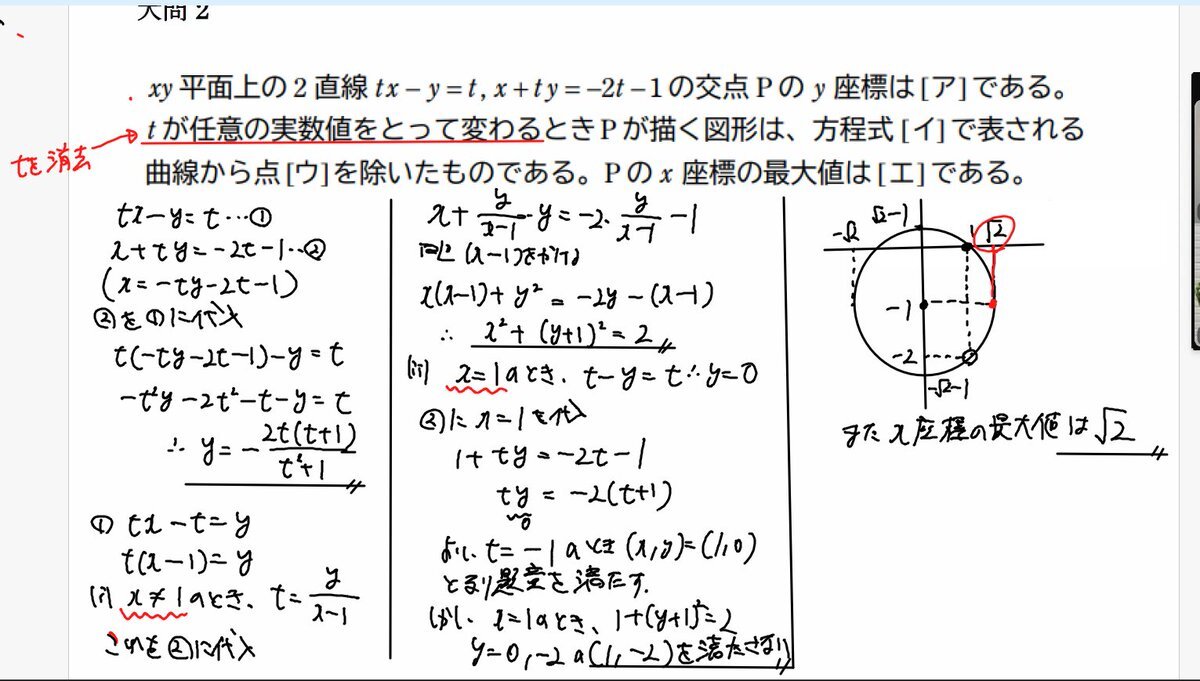 大問 2
xy 平面上の 2 直線 tx − y = t, x + ty = −2t − 1 の交点 P の y 座標は [ア] である。
t が任意の実数値をとって変わるとき P が描く図形は、方程式 [イ] で表される
曲線から点 [ウ] を除いたものである。P の x 座標の最大値は [エ] である。
tを消去
tx−y=t…①
x+ty=−2t−1…②
(x=−ty−2t−1)
②を①に代入
t(−ty−2t−1)−y=t
−t²y−2t²−t−y=t
∴ y=−2t(t+1)/(t²+1)
① tx−t=y
t(x−1)=y
(i) x≠1のとき、t=y/(x−1)
これを②に代入
x+y/(x−1)・y=−2・y/(x−1)−1
両辺(x−1)をかける
x(x−1)+y²=−2y−(x−1)
∴ x²+(y+1)²=2
(ii) x=1のとき、t−y=t∴y=0
②にx=1を代入
1+ty=−2t−1
ty=−2(t+1)
=0
よってt=−1のとき(x,y)=(1,0)
となり題意を満たす.
しかし、x=1のとき、1+(y+1)²=2
y=0,−2の(1,−2)を満たさない
√2−1
−√2
1
√2
−1
−2
−√2−1
またx座標の最大値は√2